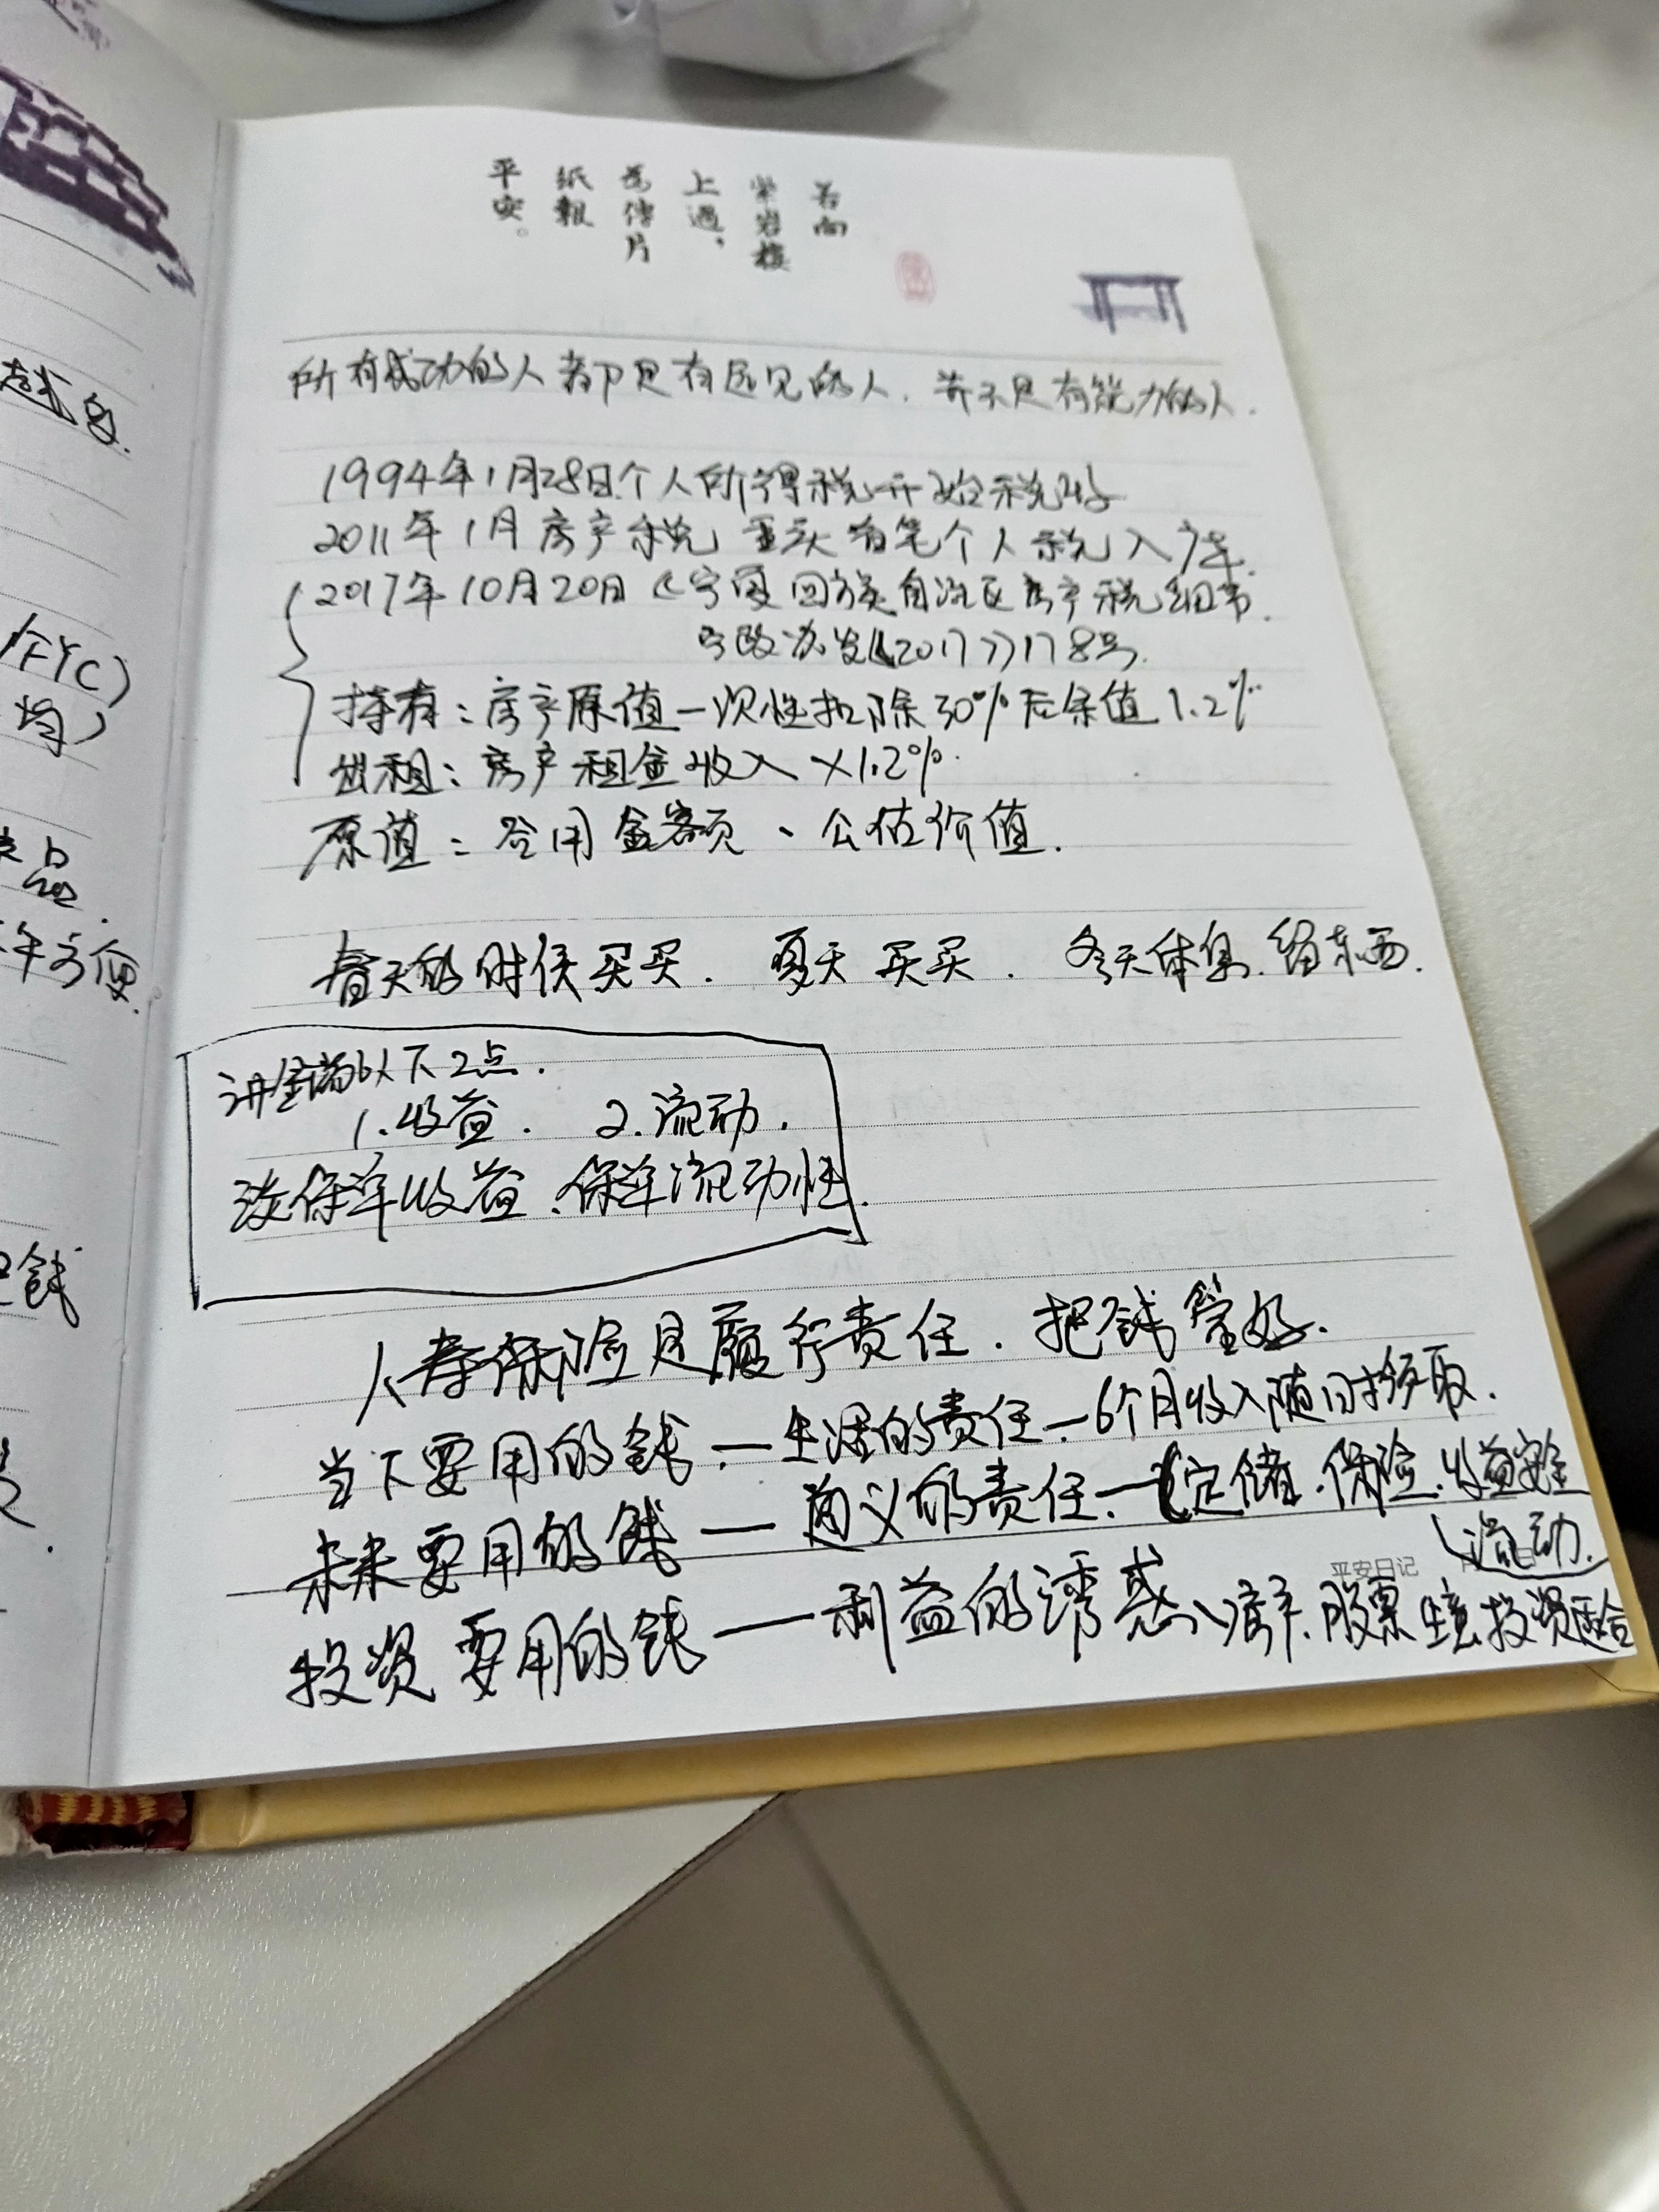 越
个YC)
均)
品.
年方便.
钱
若向
紫岩楼
上过,
为传片
纸报
平安。
所有成功的人都是有远见的人. 并不是有能力的人.
1994年1月28日个人所得税开始税收
2011年1月房产税 重庆首笔个人税入库.
2017年10月20日《宁夏回族自治区房产税细节.
宁政办发《2017》178号.
持有:房产原值一次性扣除30%后余值1.2%
出租:房产租金收入×1.2%.
原值:合同金额、公估价值.
春天的时候买买. 夏天买买. 冬天休息.留东西.
讲金瑞以下2点.
1.收益. 2.流动.
谈保单收益、保单流动性.
人寿保险是履行责任.把钱管好.
当下要用的钱—生活的责任—6个月收入随时领取.
未来要用的钱—道义的责任—定储.保险.收益安全
流动.
平安日记
投资要用的钱—利益的诱惑、房产.股票 生意投资 基金